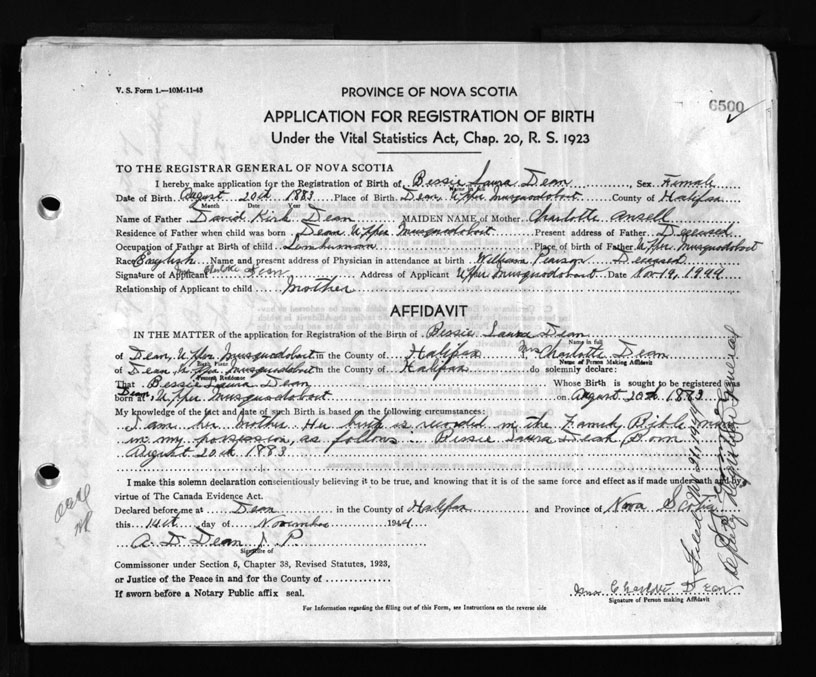 V. S. Form 1.—10M-11-43
PROVINCE OF NOVA SCOTIA
6500
APPLICATION FOR REGISTRATION OF BIRTH
Under the Vital Statistics Act, Chap. 20, R. S. 1923
TO THE REGISTRAR GENERAL OF NOVA SCOTIA
I hereby make application for the Registration of Birth of Bessie Laura Dean, Sex Female
Name in full
Date of Birth August 20th 1883 Place of Birth Dean Upper Musquodoboit County of Halifax
Month Date Year
Name of Father David Kirk Dean MAIDEN NAME of Mother Charlotte Ansell
Residence of Father when child was born Dean Upper Musquodoboit Present address of Father Deceased
Occupation of Father at Birth of child Lumberman Place of birth of Father Upper Musquodoboit
Race English Name and present address of Physician in attendance at birth William Pearson Deceased
Signature of Applicant Mrs Charlotte Dean Address of Applicant Upper Musquodoboit Date Nov 19, 1944
Relationship of Applicant to child Mother
AFFIDAVIT
IN THE MATTER of the application for Registration of the Birth of Bessie Laura Dean
Name in full
of Dean, Upper Musquodoboit in the County of Halifax Mrs Charlotte Dean
Birth Place Name of Person Making Affidavit
of Dean, Upper Musquodoboit in the County of Halifax do solemnly declare:
Present Residence
That Bessie Laura Dean Whose Birth is sought to be registered was
born at Dean Upper Musquodoboit on August 20th 1883
My knowledge of the fact and date of such Birth is based on the following circumstances:
I am her Mother Her birth is recorded in the Family Bible now
in my possession, as follows: Bessie Laura Dean Born
August 20th 1883
I make this solemn declaration conscientiously believing it to be true, and knowing that it is of the same force and effect as if made under oath and by
virtue of The Canada Evidence Act.
Declared before me at Dean in the County of Halifax and Province of Nova Scotia
this day of November 1944
A. D. Dean J. P.
Signature of
Commissioner under Section 5, Chapter 38, Revised Statutes, 1923,
or Justice of the Peace in and for the County of
If sworn before a Notary Public affix seal.
Mrs Charlotte Dean
Signature of Person making Affidavit
For Information regarding the filling out of this Form, see Instructions on the reverse side
Filed Nov 21, 1944
Deputy Registrar General